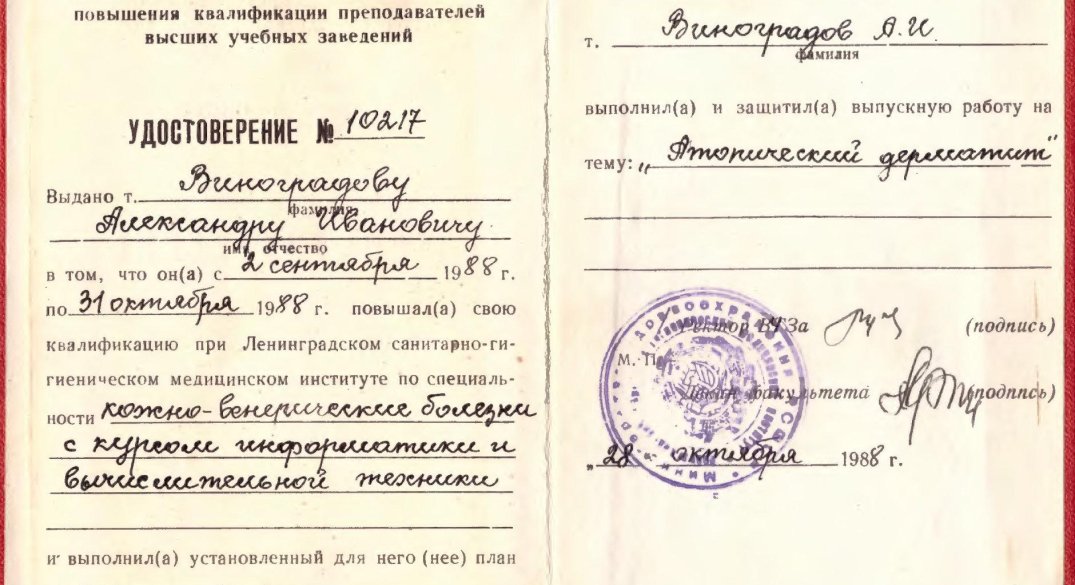 повышения квалификации преподавателей
высших учебных заведений
УДОСТОВЕРЕНИЕ № 10217
Выдано т. Виноградову
фамилия
Александру Ивановичу
имя, отчество
в том, что он(а) с 2 сентября 1988 г.
по 31 октября 1988 г. повышал(а) свою
квалификацию при Ленинградском санитарно-ги-
гиеническом медицинском институте по специаль-
ности кожно-венерические болезни
с курсом информатики и
вычислительной техники
и выполнил(а) установленный для него (нее) план
т. Виноградов А.И.
фамилия
выполнил(а) и защитил(а) выпускную работу на
тему: „Атопический дерматит"
Ректор ВУЗа (подпись)
М. П.
Декан факультета (подпись)
„28 октября 1988 г.